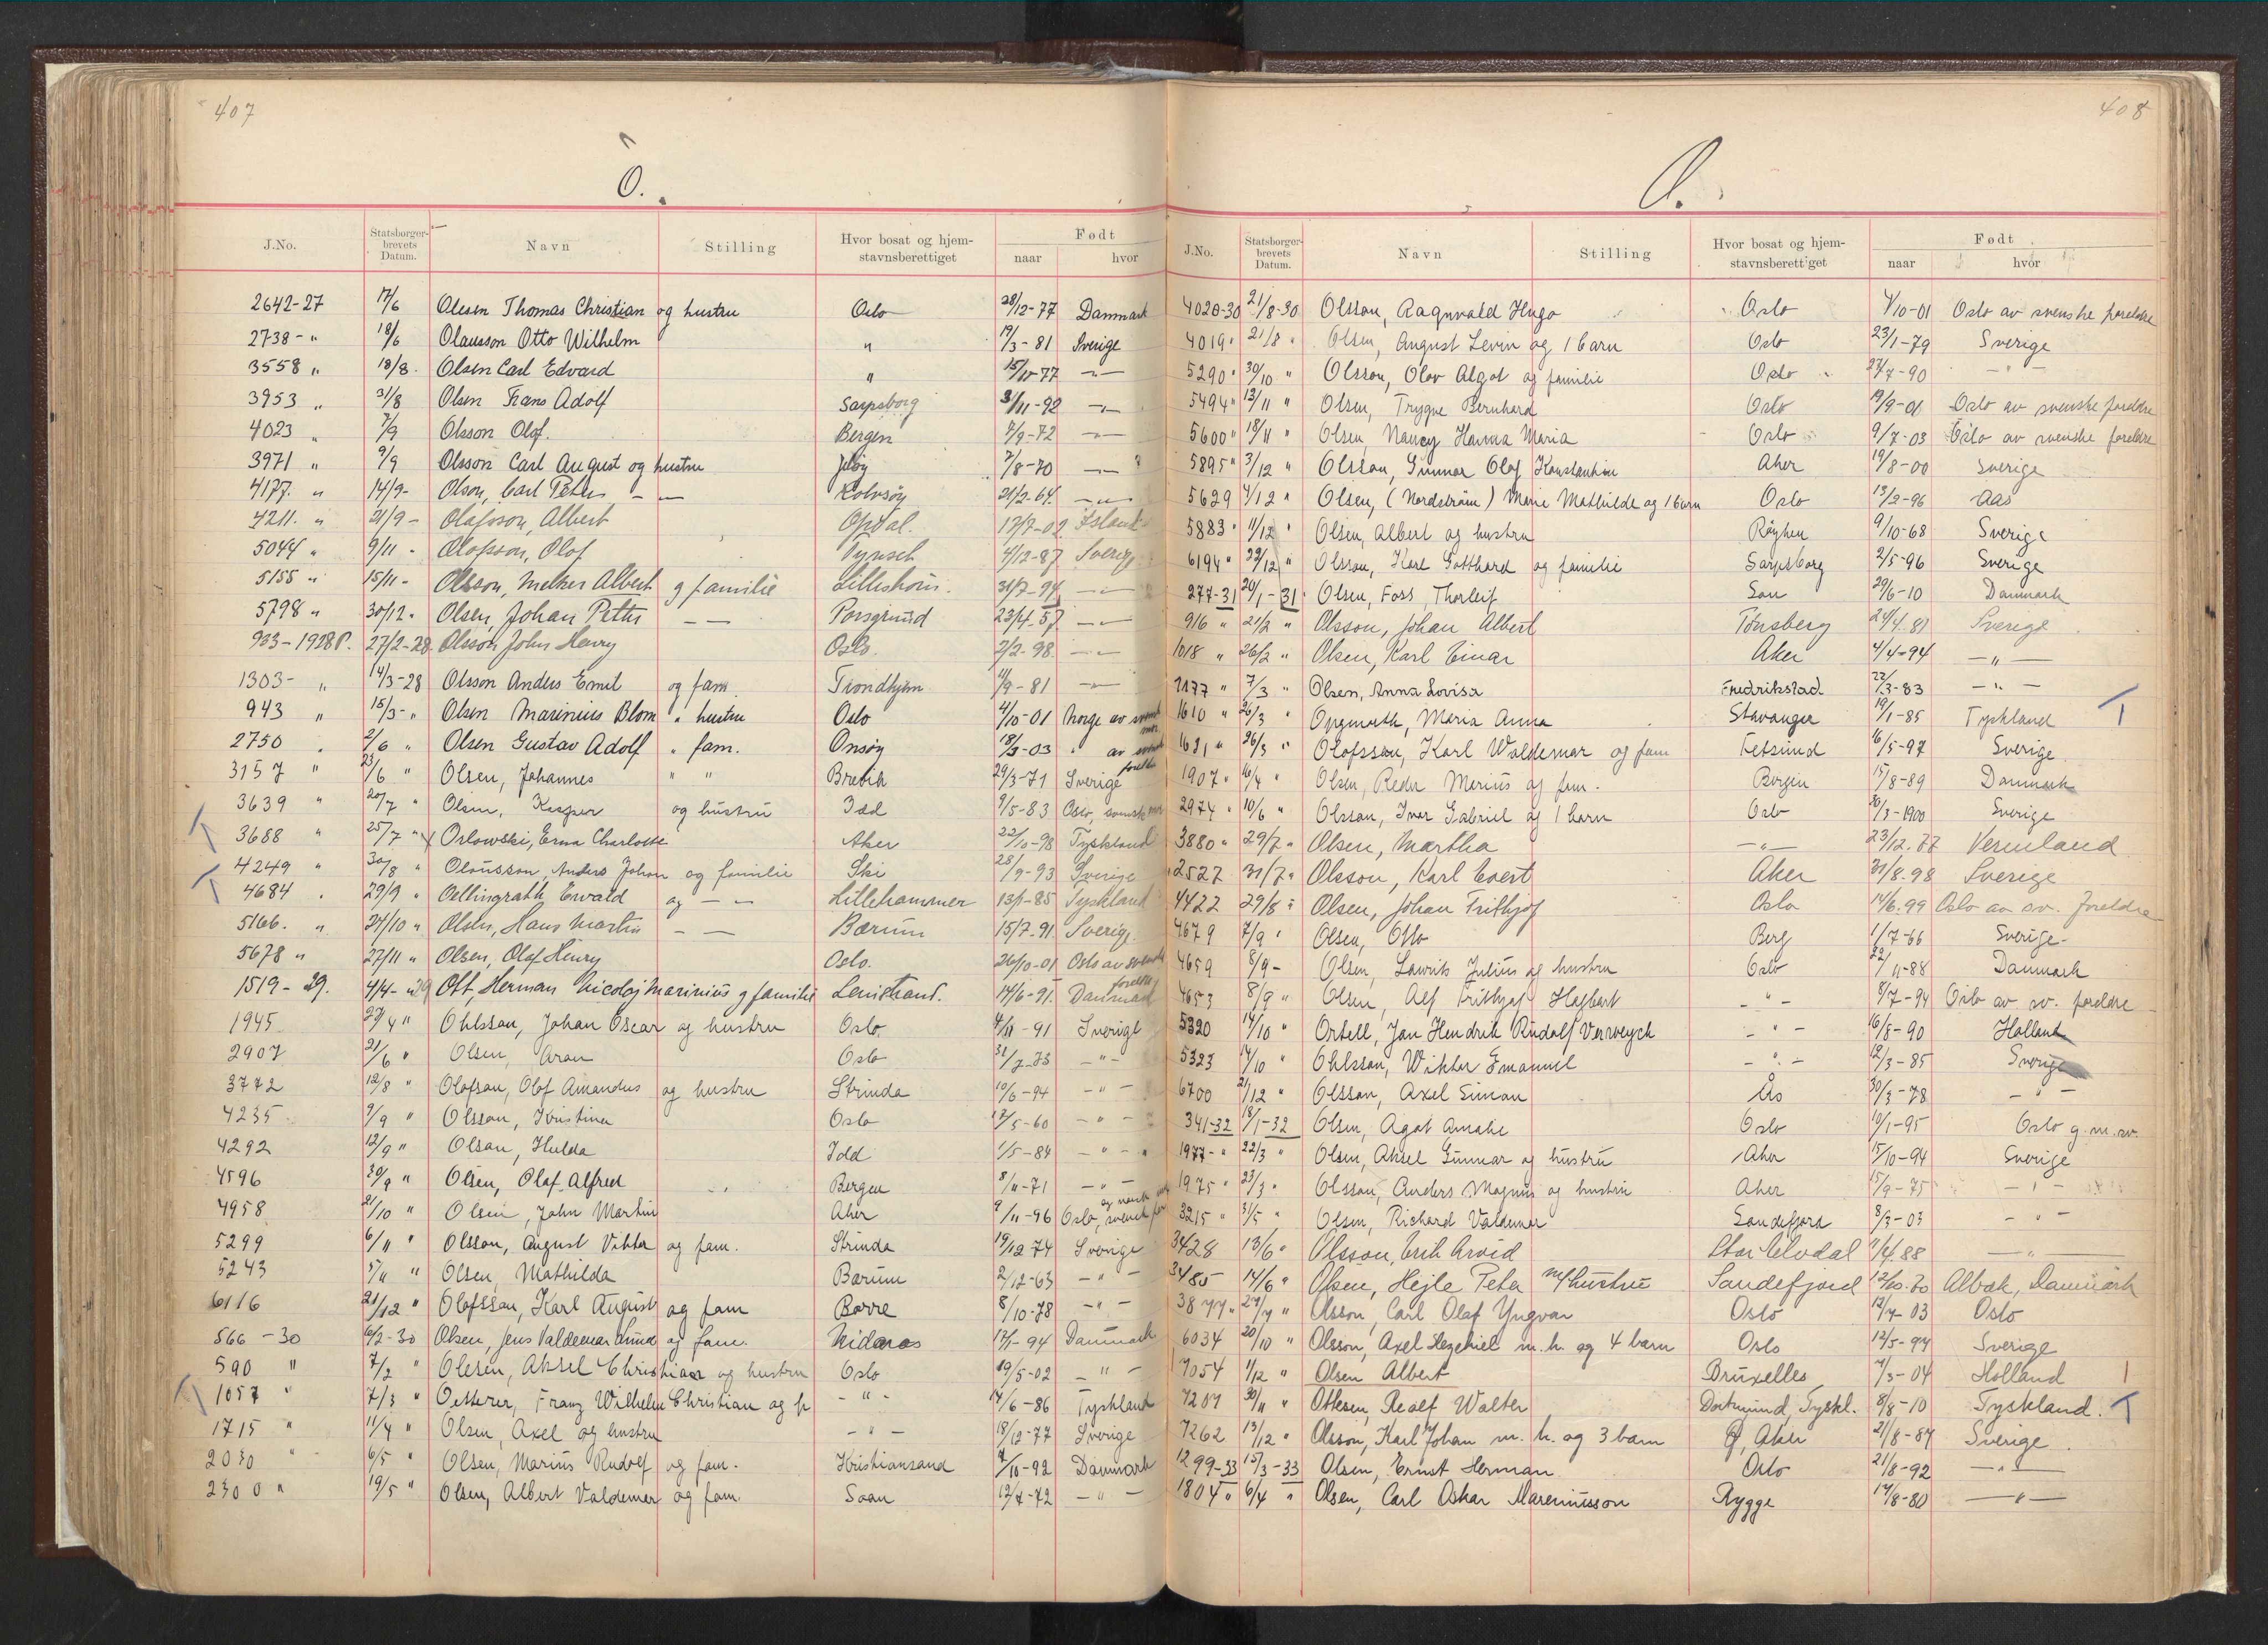 407
O.
J.No. Statsborgerbrevets Datum. Navn Stilling Hvor bosat og hjemstavnsberettiget Født naar hvor
2642-27 17/6 Olesen Thomas Christian og hustru Oslo 28/12-77 Danmark
2738-" 18/6 Olausson Otto Wilhelm " 19/3-81 Sverige
3558 " 18/8 Olsen Carl Edvard " 15/11-77 -"-
3953 " 31/8 Olsen Frans Adolf Sarpsborg 3/11-92 -"-
4023 " 7/9 Olsson Olof. Bergen 4/9-72 -"-
3971 " 9/9 Olsson Carl August og hustru Jeløy 7/8-70 -"-
4177. " 14/9- Olson, Carl Peter - - Rolvsøy 21/2-64. -"-
4211. " 21/9- Olafsson, Albert Opdal. 17/7-02 Island
5044 " 9/11- Olofsson, Olof Tynset 4/12-87 Sverige
5155 " 15/11- Olsson, Melker Albert g familie 31/7-94 -"-
5798 " 30/12- Olsen, Johan Petter - - Porsgrund 23/4-57 -"-
933-1928 P. 27/2-28. Olsson John Henry Oslo. 2/2-98. -"-
1303- " 14/3-28 Olsson Anders Emil og fam. Trondhjem 11/9-81 -"-
943 " 15/3-" Olsen Marinius Blom " hustru Oslo 4/10-01 Norge av svensk mor
2750 " 2/6 " Olsen Gustav Adolf " fam. Onsøy 18/3-03 " av svensk foreldre
3157 " 23/6 " Olsen, Johannes " " Brevik 29/3-71 Sverige
3639 " 20/7 " Olsen, Kasper og hustru Idd 9/5-83 Oslo, svensk
T 3688 " 25/7 " Orlowski, Erna Charlotte Aker 22/10-98 Tyskland
4249 " 30/8 " Olausson, Anders Johan og familie Ski 28/9-93 Sverige
T 4684 . 29/9 " Oellingrath Ewald og - - Lillehammer 13/1-85 Tyskland
5166. " 24/10 " Olsen, Hans Martin - - Bærum 15/7-91. Sverige.
5678 " 27/11 " Olsen, Olaf Henry Oslo. 26/10-01 Oslo av svensk foreldre
1519-29. 4/4-29 Ott, Herman Nicolaj Marinius g familie 14/6-91. Danmark
1945 27/4 " Ohlsson, Johan Oscar og hustru Oslo 4/11-91 Sverige
2907 21/6 " Olsen, Aron Oslo 31/7-73 -"-
3772 12/8 " Olofson, Olof Amandus og hustru Strinda 10/6-94 -"-
4235 9/9 " Olsson, Kristina Oslo 17/5-60 -"-
4292 12/9 " Olson, Hulda Idd 1/5-84 -"-
4596 30/9 " Olsen, Olaf Alfred Bergen 8/11-71 -"-
4958 21/10 " Olsen, John Martin Aker 9/11-96 Oslo, svensk far og norsk mor
5299 6/11 " Olsson, August Viktor og fam. Strinda 19/12 74 Sverige
5243 5/11 " Olsen, Mathilda Bærum 2/12-63 -"-
6116 21/12 " Olofsson, Karl August og fam Borre 8/10-78 -"-
566-30 6/2-30 Olsen, Jens Valdemar Lund og fam. Nidaros 17/1-94 Danmark
590 " 7/2 " Olesen, Aksel Christian og hustru Oslo 19/5-02 -"-
T 1057 " 7/3 " Oetterer, Franz Wilhelm Christian og fr -"- 14/6-86 Tyskland
1715 " 11/4 " Olsen, Axel og hustru -"- 18/12-77 Sverige
2030 " 6/5 " Olsen, Marius Rudolf og fam. Kristiansand 7/10-92 Danmark
2300 " 19/5 " Olsen, Albert Valdemar og fam. Soan 12/7-72 -"-
408
O.
J.No. Statsborgerbrevets Datum. Navn Stilling Hvor bosat og hjemstavnsberettiget Født naar hvor
4020-30 21/8-30 Olsson, Ragnvald Hugo Oslo 9/10-01 Oslo av svenske foreldre
4019 " 21/8 " Olsen, August Levin og 1 barn Oslo 23/1-79 Sverige
5290 " 30/10 " Olsson, Olov Algot og familie Oslo 27/7-90 -"-
5494 " 13/11 " Olsen, Trygve Bernhard Oslo 19/9-01 Oslo av svenske foreldre
5600 " 18/11 " Olsen Nancy Hanna Maria Oslo 9/7-03 Oslo av svenske foreldre
5895 " 3/12 " Olsson, Gunnar Olof Konstantin Aker 19/8-00 Sverige
5629 4/12 " Olsen, (Nordstrøm) Marie Mathilde og 1 barn Oslo 13/2-96 Aas
5883 " 11/12 " Olsen, Albert og hustru Røyken 9/10-68 Sverige
6194 " 22/12 " Olsson, Karl Gotthard og familie Sarpsborg 2/5-96 Sverige
277-31 20/1-31 Olsen, Foss, Thorleif Son 29/6-10 Danmark
916 " 21/2 " Olsson, Johan Albert Tønsberg 24/4.81 Sverige
1018 " 26/2 " Olsen, Karl Einar Aker 4/4-94 -"-
1177 " 7/3 " Olsen, Anna Lovisa Fredrikstad 22/3-83 -"-
1610 " 26/3 " Opgenorth, Maria Anna Stavanger 19/1-85 Tyskland T
1621 " 26/3 " Olofsson, Karl Waldemar og fam Fetsund 16/5-97 Sverige
1907 " 16/4 " Olsen, Peder Marius og fam. Bergen 15/8-89 Danmark
2974 " 10/6 " Olsson, Ivar Gabriel og 1 barn Oslo 30/3-1900 Sverige
3880 " 29/7 " Olsen, Martha -"- 23/12.77 Vermland
2527 31/7 " Olsson, Karl Evert Aker 31/8.98 Sverige
4422 29/8 " Olsen, Johan Frithjof Oslo 14/6.99 Oslo av sv. foreldre
4679 7/9 " Olsen, Otto Berg 1/7-66 Sverige-
4659 8/9- Olsen, Laurits Julius og hustru Oslo 22/11-88 Danmark
4653 8/9 " Olsen, Alf Frithjof Hagbart -"- 8/7-94 Oslo av sv. foreldre
5320 14/10 " Ortell, Jan Hendrik Rudolf Verweyck -"- 16/8-90 Holland
5323 14/10 " Ohlsson, Wiktor Emanuel -"- 12/3-85 Sverige
6700 21/12 " Olsson, Axel Simon Ås 30/3-78 -"-
341-32 18/1-32 Olsen, Agot Amalie Oslo 10/1-95 Oslo g.m.sv.
1977-" 22/3 " Olsen, Aksel Gunnar og hustru Aker 15/10-94 Sverige
1975 " 23/3 " Olsson, Anders Magnus og hustru Aker 15/9-75 -"-
3215 " 31/5 " Olsen, Richard Valdemar Sandefjord 8/3-03 -"-
3428 13/6 " Olsson, Erik Arvid Stor Elvdal 9/4.88 -"-
3485 14/6 " Olsen, Hejle Peter m/hustru Sandefjord 12/10.70 Albæk, Danmark
3877 " 27/7 " Olsson, Carl Olaf Yngvar Oslo 12/7-03 Oslo
6034 20/10 " Olsson, Axel Hezekiel m.h. og 4 barn Oslo 12/5-94 Sverige
7054 1/12 " Olsen Albert Bruxelles 7/3-04 Holland
7207 30/11 " Ottesen, Realf Walter Dortmund, Tyskl. 8/8-10 Tyskland. T
7262 13/12 " Olsson, Karl Johan m. h. og 3 barn Ø, Aker 21/8-87 Sverige
1299-33 15/3-33 Olsen, Ernst Herman Oslo 21/8-92 -"-
1804 " 6/4 " Olsen, Carl Oskar Mareniusson Rygge 14/8-80 -"-